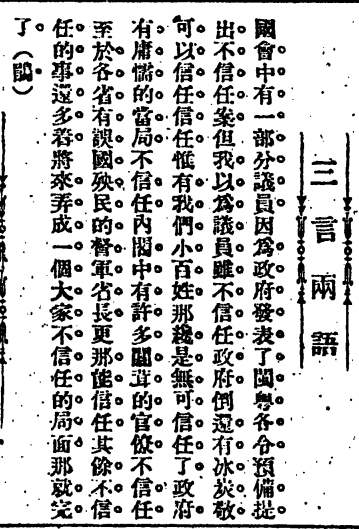 三言兩語
國會中有一部分議員因爲政府發表了閩粵各令預備提
出不信任案但我以爲議員雖不信任政府倒還有冰炭敬
可以信任信任惟有我們小百姓那纔是無可信任了政府
有庸懦的當局不信任內閣中有許多闒茸的官僚不信任
至於各省有誤國殃民的督軍省長更那能信任其餘不信
任的事還多若將來弄成一個大家不信任的局面那就完
了（鵑）